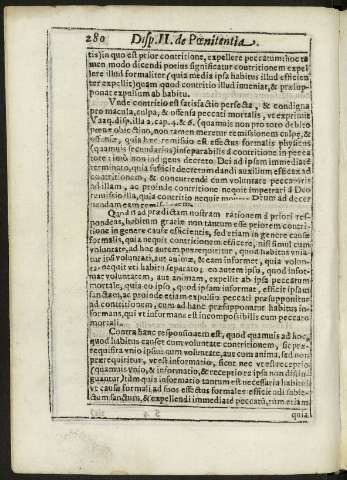 280 Disp. II. de Pœnitentia.
tis) in quo est prior contritione, expellere peccatum: hoc ta
men modo dicendi potius significatur contritionem expel
lere illud formaliter (quia media ipsa habitus illud efficien
ter expellit) quam quod contritio illud inueniat, & præsup-
ponat expulsum ab habitu.
Vnde contritio est satisfactio perfecta, & condigna
pro macula, culpa, & offensa peccati mortalis, vt exprimit
Vazq. disp. illa 2. cap. 4. & 6. (quamuis non pro toto debito
pœnæ obiectino, non tamen meretur remissionem culpæ, &
offensæ, quia hæc remissio est effectus formalis physicus
(quamuis secundarius) inseparabilis à contritione in pecca
tore: imò non indigens decreto. Dei ad ipsam immediatè
terminato, quia sufficit decretum dandi auxilium efficax ad
contritionem, & concurrendi cum voluntate peccatoris
ad illam, ac proinde contritio nequit impetrari à Deo
remissio illa, quia contritio nequit mouere Deum ad decer
nendam eam remissionem.
Quando ad prædictam nostram rationem à priori res-
pondeas, habitum gratiæ non tantum esse priorem contri
tione in genere causæ efficientis, sed etiam in genere causæ
formalis, quia nequit contritionem efficere, nisi simul cum
voluntate, ad hoc autem prærequiritur, quod habitus vnia
tur ipsi voluntati, aut animæ, & eam informet, quia volun-
tas nequit vti habitu separato; en autem ipso, quod infor-
mat voluntatem, aut animam, expellit ab ipsa peccatum
mortale, quia eo ipso, quod ipsam informat, efficit ipsam
sanctam, ac proinde etiam expulsio peccati præsupponitur
ad contritionem, cum ad hanc præsupponatur habitus in-
formans, qui vt informans est incompossibilis cum peccato
mortali.
Contra hanc responsionem est, quod quamuis ad hoc,
quod habitus causet cum voluntate contritionem, sit præ-
requisita vnio ipsius cum voluntate, aut cum anima, sed non
prærequiritur, vt est informatio, sicut nec vt est receptio
(quamuis vnio, & informatio, & receptio re ipsa non distin
guantur) dum informatio tantum est necessaria habitui
vt causæ formali ad suos effectus formales efficiendi subie-
ctum sanctum, & expellendi immediatè peccatū, tum etiam
quia